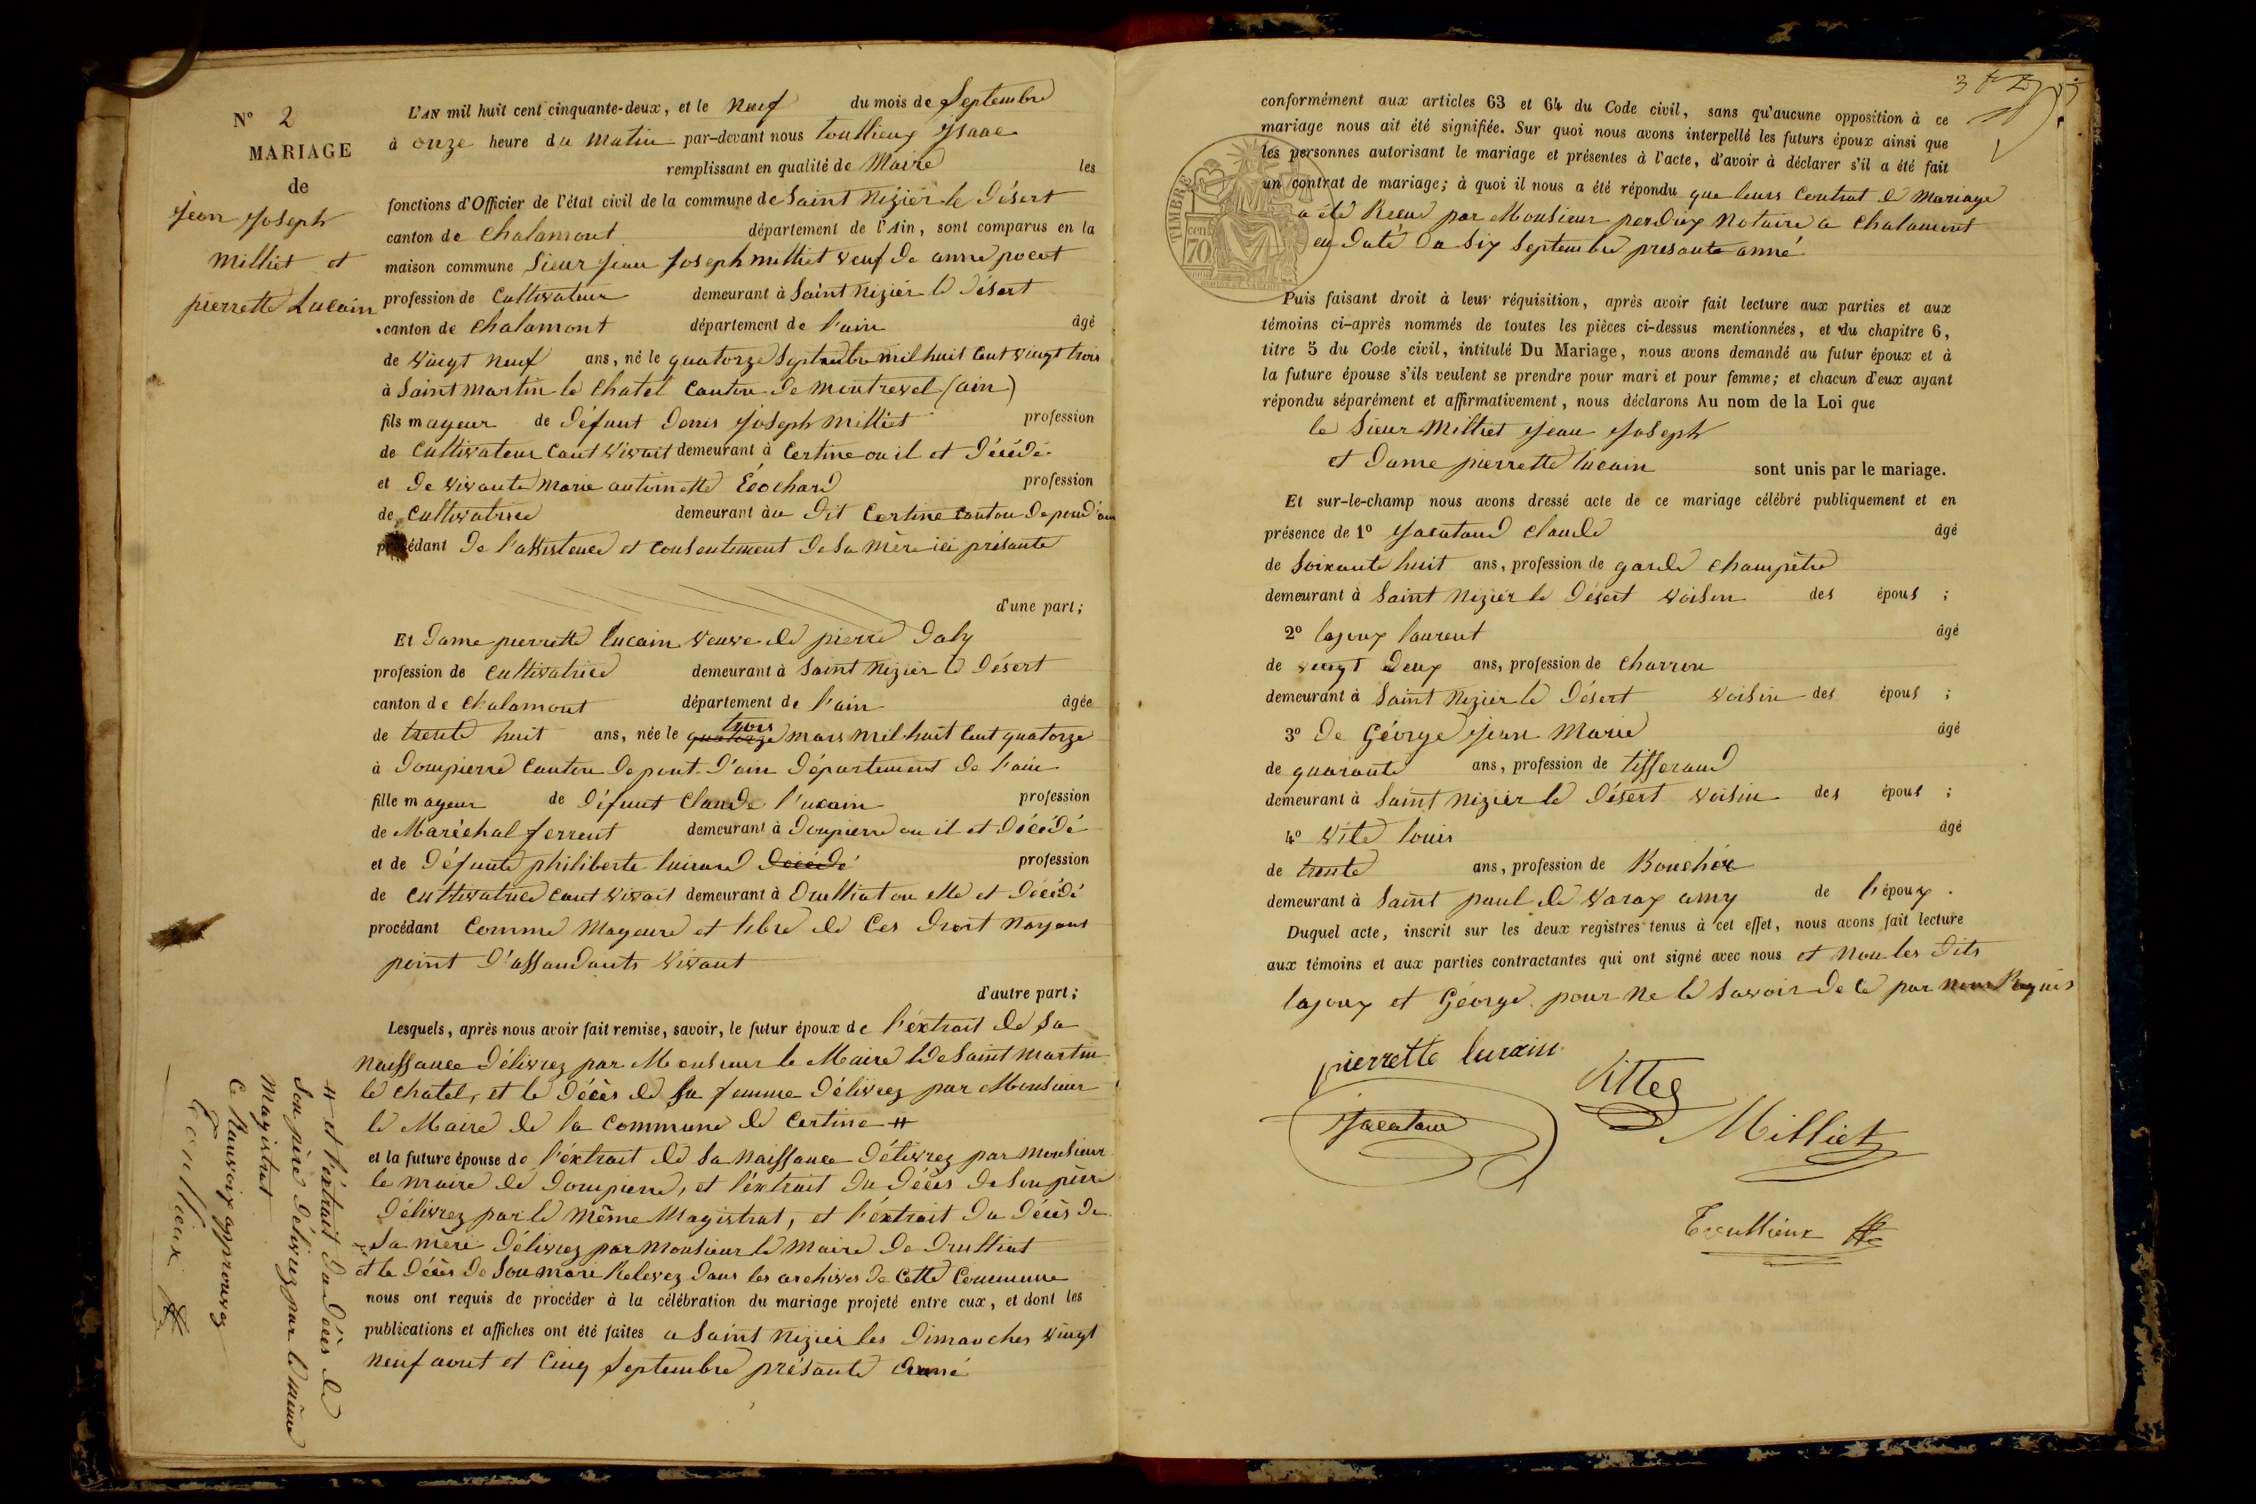 N° 2
MARIAGE
de
Jean Joseph
Milliet et
pierrette Lucain
L'AN mil huit cent cinquante-deux, et le neuf du mois de Septembre
à onze heure du matin par-devant nous toullieux Ysaac
remplissant en qualité de Maire les
fonctions d'Officier de l'état civil de la commune de Saint Nizier le Désert
canton de Chalamont département de l'Ain, sont comparus en la
maison commune Sieur Jean Joseph milliet veuf de anne pocot
profession de Cultivateur demeurant à Saint Nizier le Désert
canton de Chalamont département de l'ain âgé
de vingt neuf ans, né le quatorze Septembre mil huit cent vingt trois
à Saint Martin le Chatel Canton de Montrevel (ain)
fils mayeur de défunt Denis Joseph Milliet profession
de Cultivateur cant vivait demeurant à Certine ou il et décédé
et de vivante Marie antoinette Écochard profession
de Cultivatrice demeurant àu dit Certine Canton de pond'ain
procédant de l'assistence et consentement de sa mère ici présante
d'une part;
Et Dame pierrette lucain veuve de pierre Daly
profession de Cultivatrice demeurant à Saint Nizier le Désert
canton de Chalamont département de l'ain âgée
de trente huit ans, née le quatorze trois mars mil huit cent quatorze
à Dompierre Canton de pont d'ain Département de l'ain
fille mayeur de défunt Claude l'ucain profession
de Maréchal ferrent demeurant à Dompierre ou il et décédé
et de défunte philiberte décédé profession
de Cultivatrice cant vivait demeurant à Drulliat ou elle et décédé
procédant Comme Mayeure et libre de Ces droit Nayant
point d'assandants vivant
d'autre part;
Lesquels, après nous avoir fait remise, savoir, le futur époux de l'éxtrait de Sa
naissance délivrez par Monsieur le Maire de Saint Martin
le Chatel, et le décès de Sa femme délivrez par Monsieur
le Maire de la Commune de Certine #
et la future épouse de l'éxtrait de Sa naissance délivrez par Monsieur
le Maire de Dompierre, et l'éxtrait du décès de Son père
délivrez par le Même Magistrat, et l'éxtrait du décès de
Sa mère délivrez par Monsieur le Maire de Drulliat
et le décès de Son mari Relevez dans les archives de Cette Commune
nous ont requis de procéder à la célébration du mariage projeté entre eux, et dont les
publications et affiches ont été faites a Saint Nizier les dimanches vingt
neuf aout et Cinq Septembre présante anné
# et l'éxtrait du décès de
Son père délivrez par le même
Magistrat
Ce Ranvoix approuvez
Toullieux
conformément aux articles 63 et 64 du Code civil, sans qu'aucune opposition à ce
mariage nous ait été signifiée. Sur quoi nous avons interpellé les futurs époux ainsi que
les personnes autorisant le mariage et présentes à l'acte, d'avoir à déclarer s'il a été fait
un contrat de mariage; à quoi il nous a été répondu que leurs Contrat de Mariage
a été Recu par Monsieur perdrix Notaire a Chalamont
en date du Six Septembre presante anné
TIMBRE
70 cent
Puis faisant droit à leur réquisition, après avoir fait lecture aux parties et aux
témoins ci-après nommés de toutes les pièces ci-dessus mentionnées, et du chapitre 6,
titre 5 du Code civil, intitulé Du Mariage, nous avons demandé au futur époux et à
la future épouse s'ils veulent se prendre pour mari et pour femme; et chacun d'eux ayant
répondu séparément et affirmativement, nous déclarons Au nom de la Loi que
le Sieur Milliet Jean Joseph
et Dame pierrette lucain sont unis par le mariage.
Et sur-le-champ nous avons dressé acte de ce mariage célébré publiquement et en
présence de 1° Jacatand Claude âgé
de Soixante huit ans, profession de garde Champètre
demeurant à Saint Nizier le Désert voisin des épous ;
2° lajoux laurent âgé
de vingt deux ans, profession de Charron
demeurant à Saint Nizier le Désert voisin des épous ;
3° De Géorge Jean Marie âgé
de quarante ans, profession de tisserand
demeurant à Saint Nizier le Désert voisin des épous ;
4° Vite louis âgé
de trente ans, profession de Bouchér
demeurant à Saint paul de Varax amy de l'époux.
Duquel acte, inscrit sur les deux registres tenus à cet effet, nous avons fait lecture
aux témoins et aux parties contractantes qui ont signé avec nous et Non les dits
lajoux et Géorge pour ne le Savoir de ce par nous Requis
pierrette lucain
Vittes
Jacatand
Milliet
Toullieux